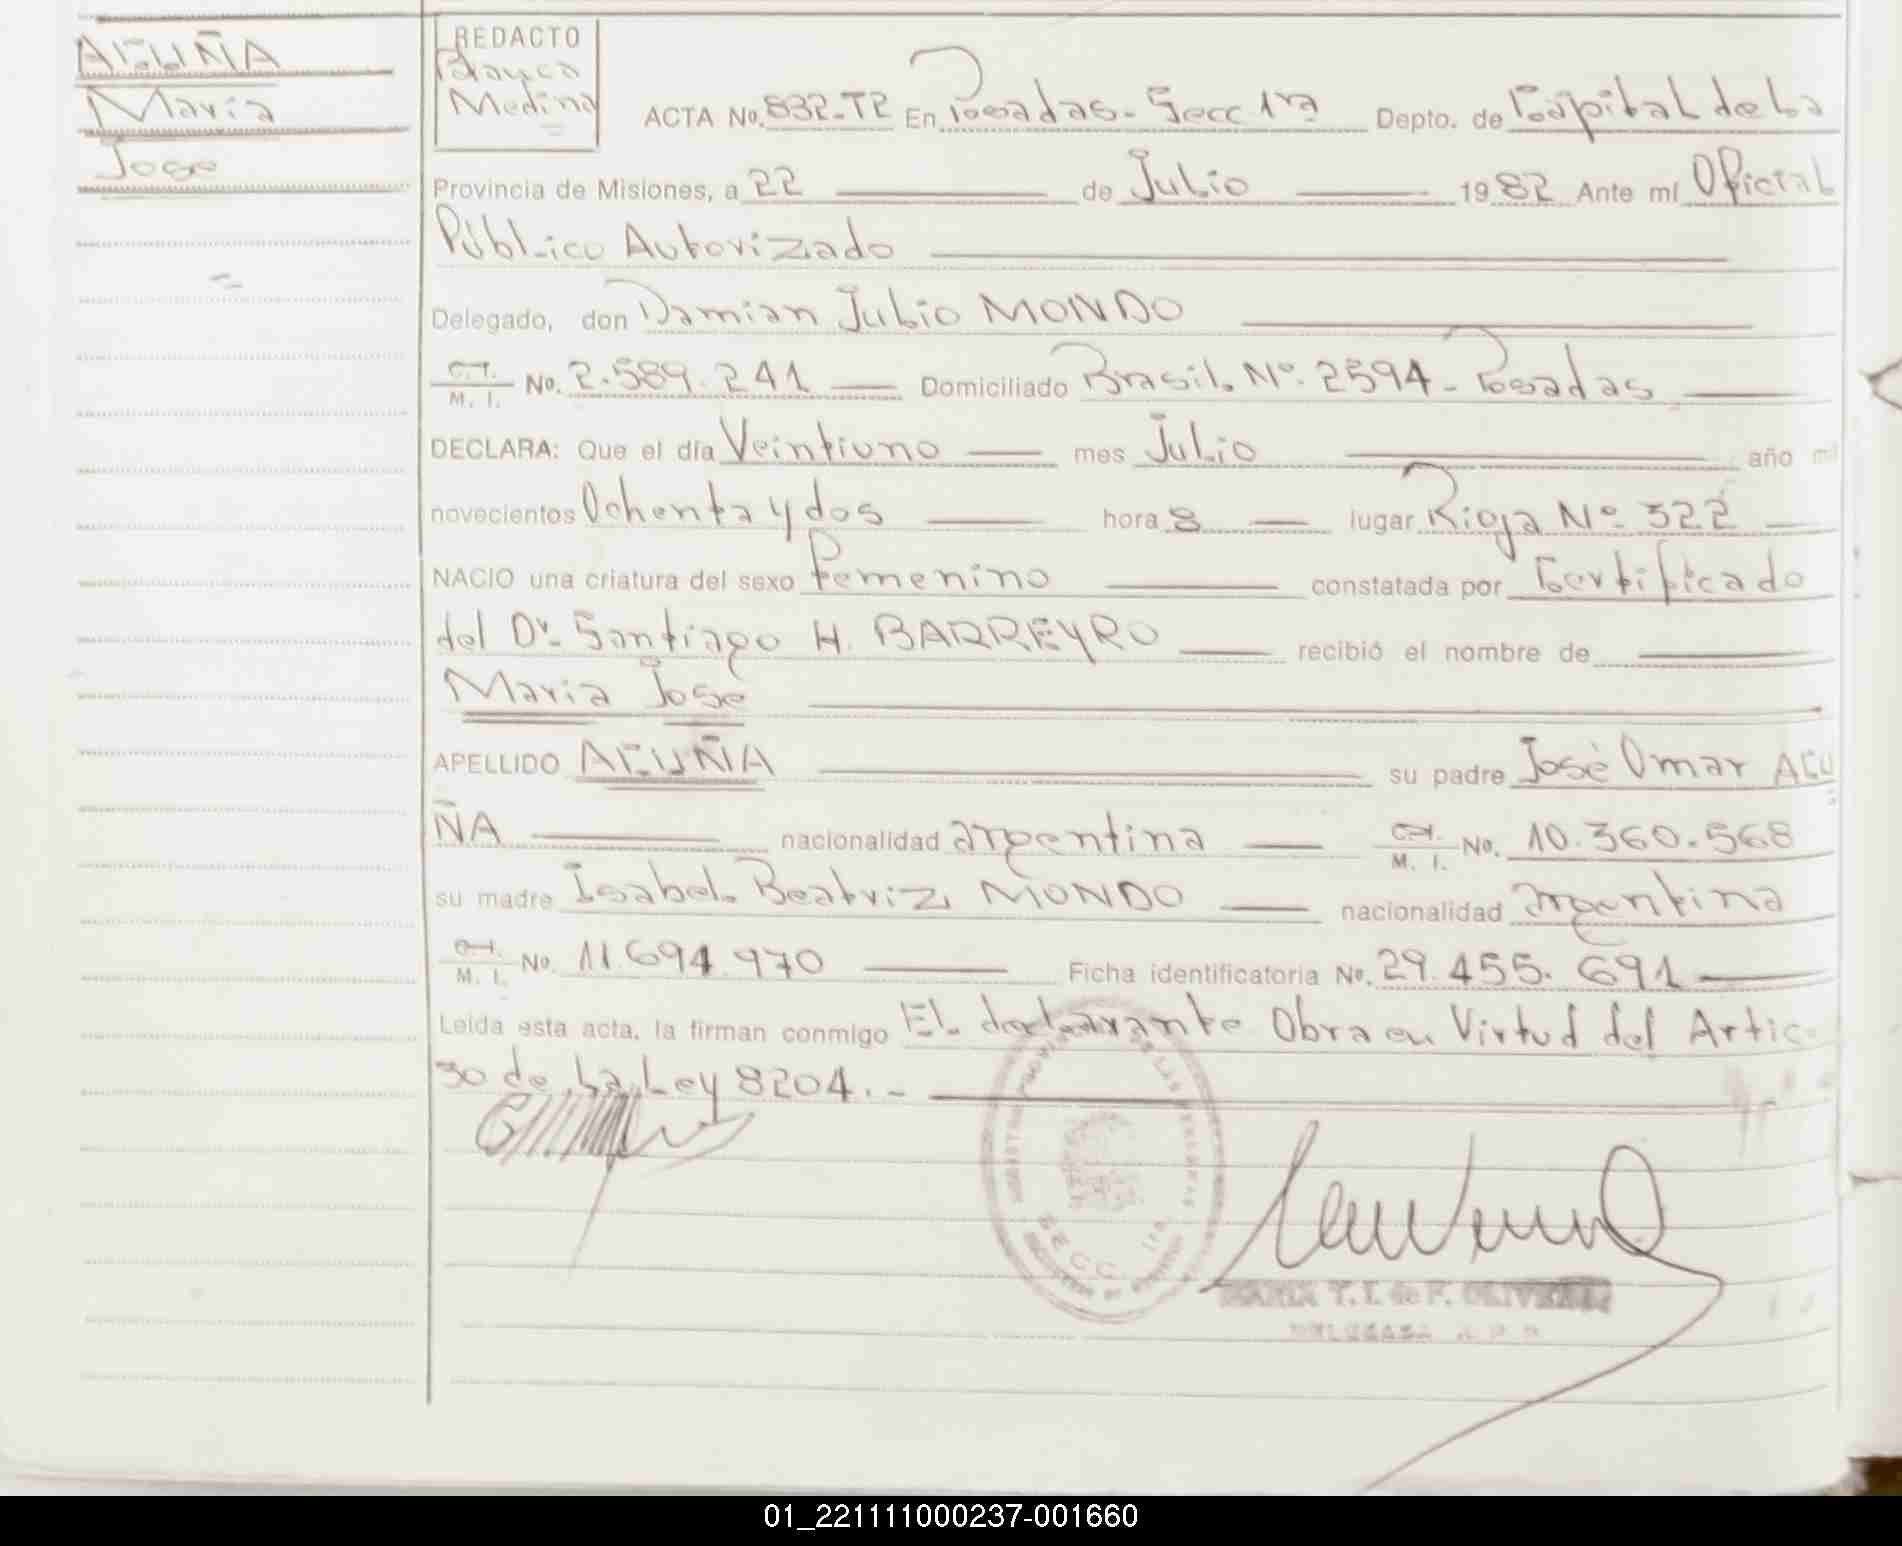 ACUÑA
Maria
Jose
REDACTO
Blanca
Medina
ACTA No. 832-T2 En Posadas- Secc 1ra Depto. de Capital de la
Provincia de Misiones, a 22 de Julio 1982 Ante mí Oficial
Público Autorizado
Delegado, don Damian Julio MONDO
C.I.
M. I. No. 2.589.241 Domiciliado Brasil Nº. 2594- Posadas
DECLARA: Que el día Veintiuno mes Julio año mil
novecientos Ochenta y dos hora 8 lugar Rioja Nº 322
NACIO una criatura del sexo femenino constatada por Certificado
del Dr. Santiago H. BARREYRO recibió el nombre de
Maria Jose
APELLIDO ACUÑA su padre José Omar ACU
ÑA nacionalidad argentina C.I.
M. I. No. 10.360.568
su madre Isabel Beatriz MONDO nacionalidad argentina
C.I.
M. I. No. 11.694.970 Ficha identificatoria No. 29.455.691
Leída esta acta, la firman conmigo El declarante Obra en Virtud del Artic.
30 de la Ley 8204.-
SECC. 1ra
MARIA T. I. de F. OLIVEIRA
DELEGADA
01_221111000237-001660